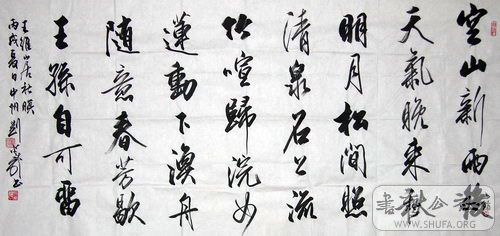 空山新雨後
天氣晚来秋
明月松間照
清泉石上流
竹喧歸浣女
蓮動下漁舟
随意春芳歇
王孫自可畱
王維山居秋暝
丙戌夏日中州劉
WWW.SHUFA.ORG